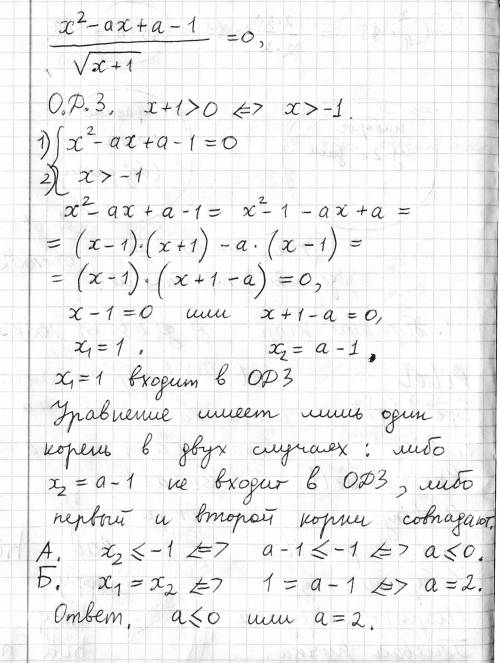 x² - ax + a - 1 / √(x+1) = 0,
О.Р.З. x+1>0 <=> x>-1.
1) { x² - ax + a - 1 = 0
2) { x > -1
x² - ax + a - 1 = x² - 1 - ax + a =
= (x-1)·(x+1) - a·(x-1) =
= (x-1)·(x+1-a) = 0,
x-1=0 или x+1-a=0,
x₁=1. x₂=a-1.
x₁=1 входит в ОДЗ
Уравнение имеет лишь один
корень в двух случаях: либо
x₂=a-1 не входит в ОДЗ, либо
первый и второй корни совпадают.
А. x₂≤-1 <=> a-1≤-1 <=> a≤0.
Б. x₁=x₂ <=> 1=a-1 <=> a=2.
Ответ. a≤0 или a=2.